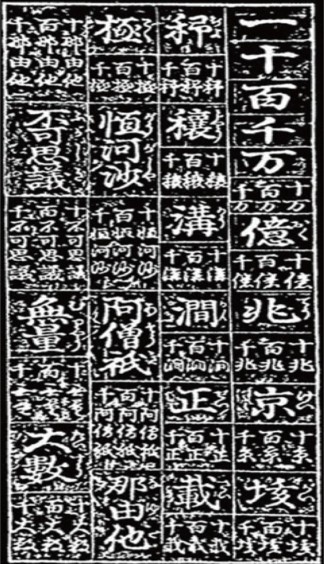 一
十
百
千
万
十万
百万
千万
億
十億
百億
千億
兆
十兆
百兆
千兆
京
十京
百京
千京
垓
十垓
百垓
千垓
𥝱
十𥝱
百𥝱
千𥝱
穰
十穰
百穰
千穰
溝
十溝
百溝
千溝
澗
十澗
百澗
千澗
正
十正
百正
千正
載
十載
百載
千載
極
十極
百極
千極
恒河沙
十恒河沙
百恒河沙
千恒河沙
阿僧祇
十阿僧祇
百阿僧祇
千阿僧祇
那由他
十那由他
百那由他
千那由他
不可思議
十不可思議
百不可思議
千不可思議
無量
十無量
百無量
千無量
大數
十大數
百大數
千大數